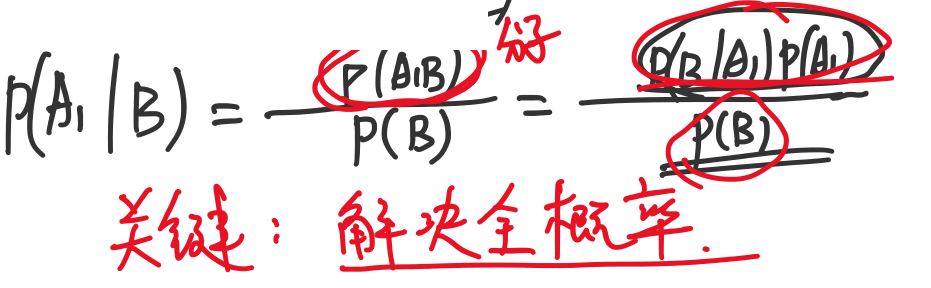 分子
P(A₁|B) = P(A₁B) / P(B) = P(B|A₁)P(A₁) / P(B)
关键：解决全概率.